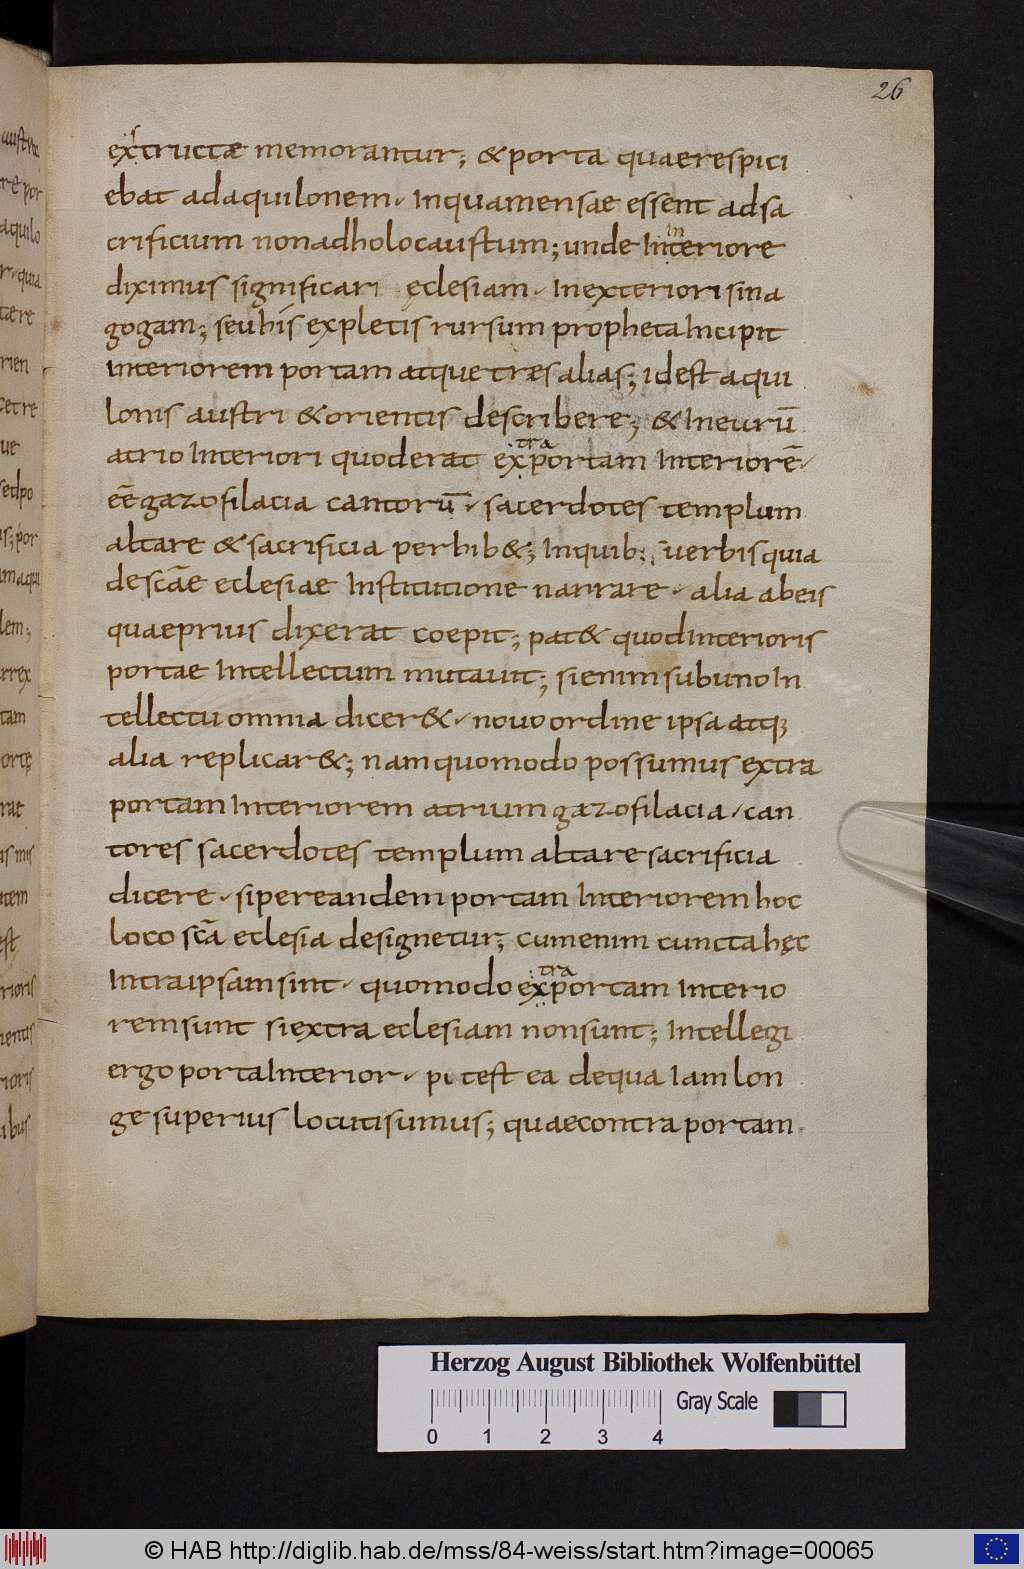 26
exstructae memorantur; & porta quae respici
ebat ad aquilonem. In qua mensae essent ad sa
crificium non ad holocaustum; unde In interiore
diximus significari ęclesiam. In exteriori sina
gogam; seu his expletis rursum propheta Incipit
Interiorem portam atque tres alias; id est aqui
lonis austri & orientis describere; & In eurū
atrio Interiori quod erat extra portam Interiorē.
eē gazofilacia cantorū. sacerdotes templum
altare & sacrificia perhib&; In quib; uerbis quia
de scāe eclesiae Institutione narrare. alia ab eis
quae prius dixerat coepit; pat& quod Interioris
portae Intellectum mutauit; si enim sub uno In
tellectu omnia dicer&. nouo ordine ipsa atq;
alia replicar&; nam quomodo possumus extra
portam Interiorem atrium gazofilacia. can
tores sacerdotes templum altare sacrificia
dicere. si per eandem portam Interiorem hoc
loco scā eclesia designetur; cum enim cuncta hęc
Intra ipsam sint. quomodo extra portam Interio
rem sunt si extra eclesiam non sunt; Intellegi
ergo porta Interior. potest ea de qua Iam lon
ge superius locuti sumus; quae contra portam
Herzog August Bibliothek Wolfenbüttel
Gray Scale
0 1 2 3 4
© HAB http://diglib.hab.de/mss/84-weiss/start.htm?image=00065